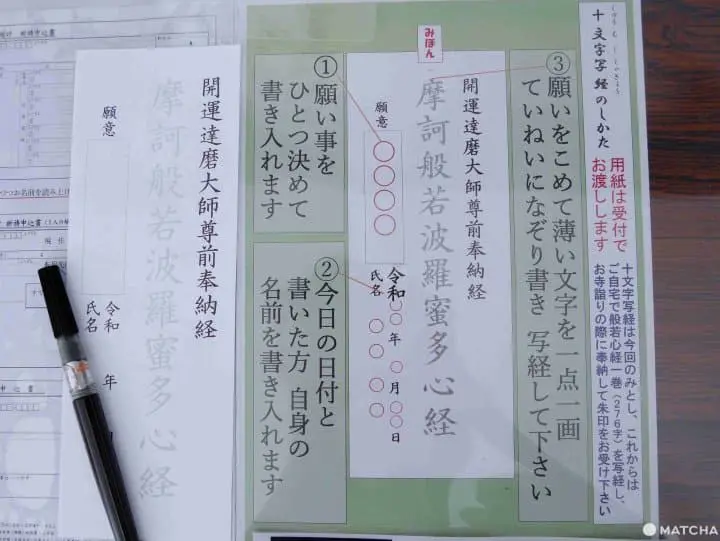 十文字写経のしかた
用紙は受付で
お渡しします
十文字写経は今回のみとし、これからは
ご自宅で般若心経一巻(276字)を写経し、
お寺詣りの際に奉納して朱印をお受け下さい
③願いをこめて薄い文字を一点一画
ていねいになぞり書き 写経して下さい
みほん
開運達磨大師尊前奉納経
摩訶般若波羅蜜多心経
願意
○○○○
令和○○年○月○○日
氏名 ○○○○
①願い事を
ひとつ決めて
書き入れます
②今日の日付と
書いた方 自身の
名前を書き入れます
開運達磨大師尊前奉納経
摩訶般若波羅蜜多心経
願意
令和 年 月
氏名
MATCHA